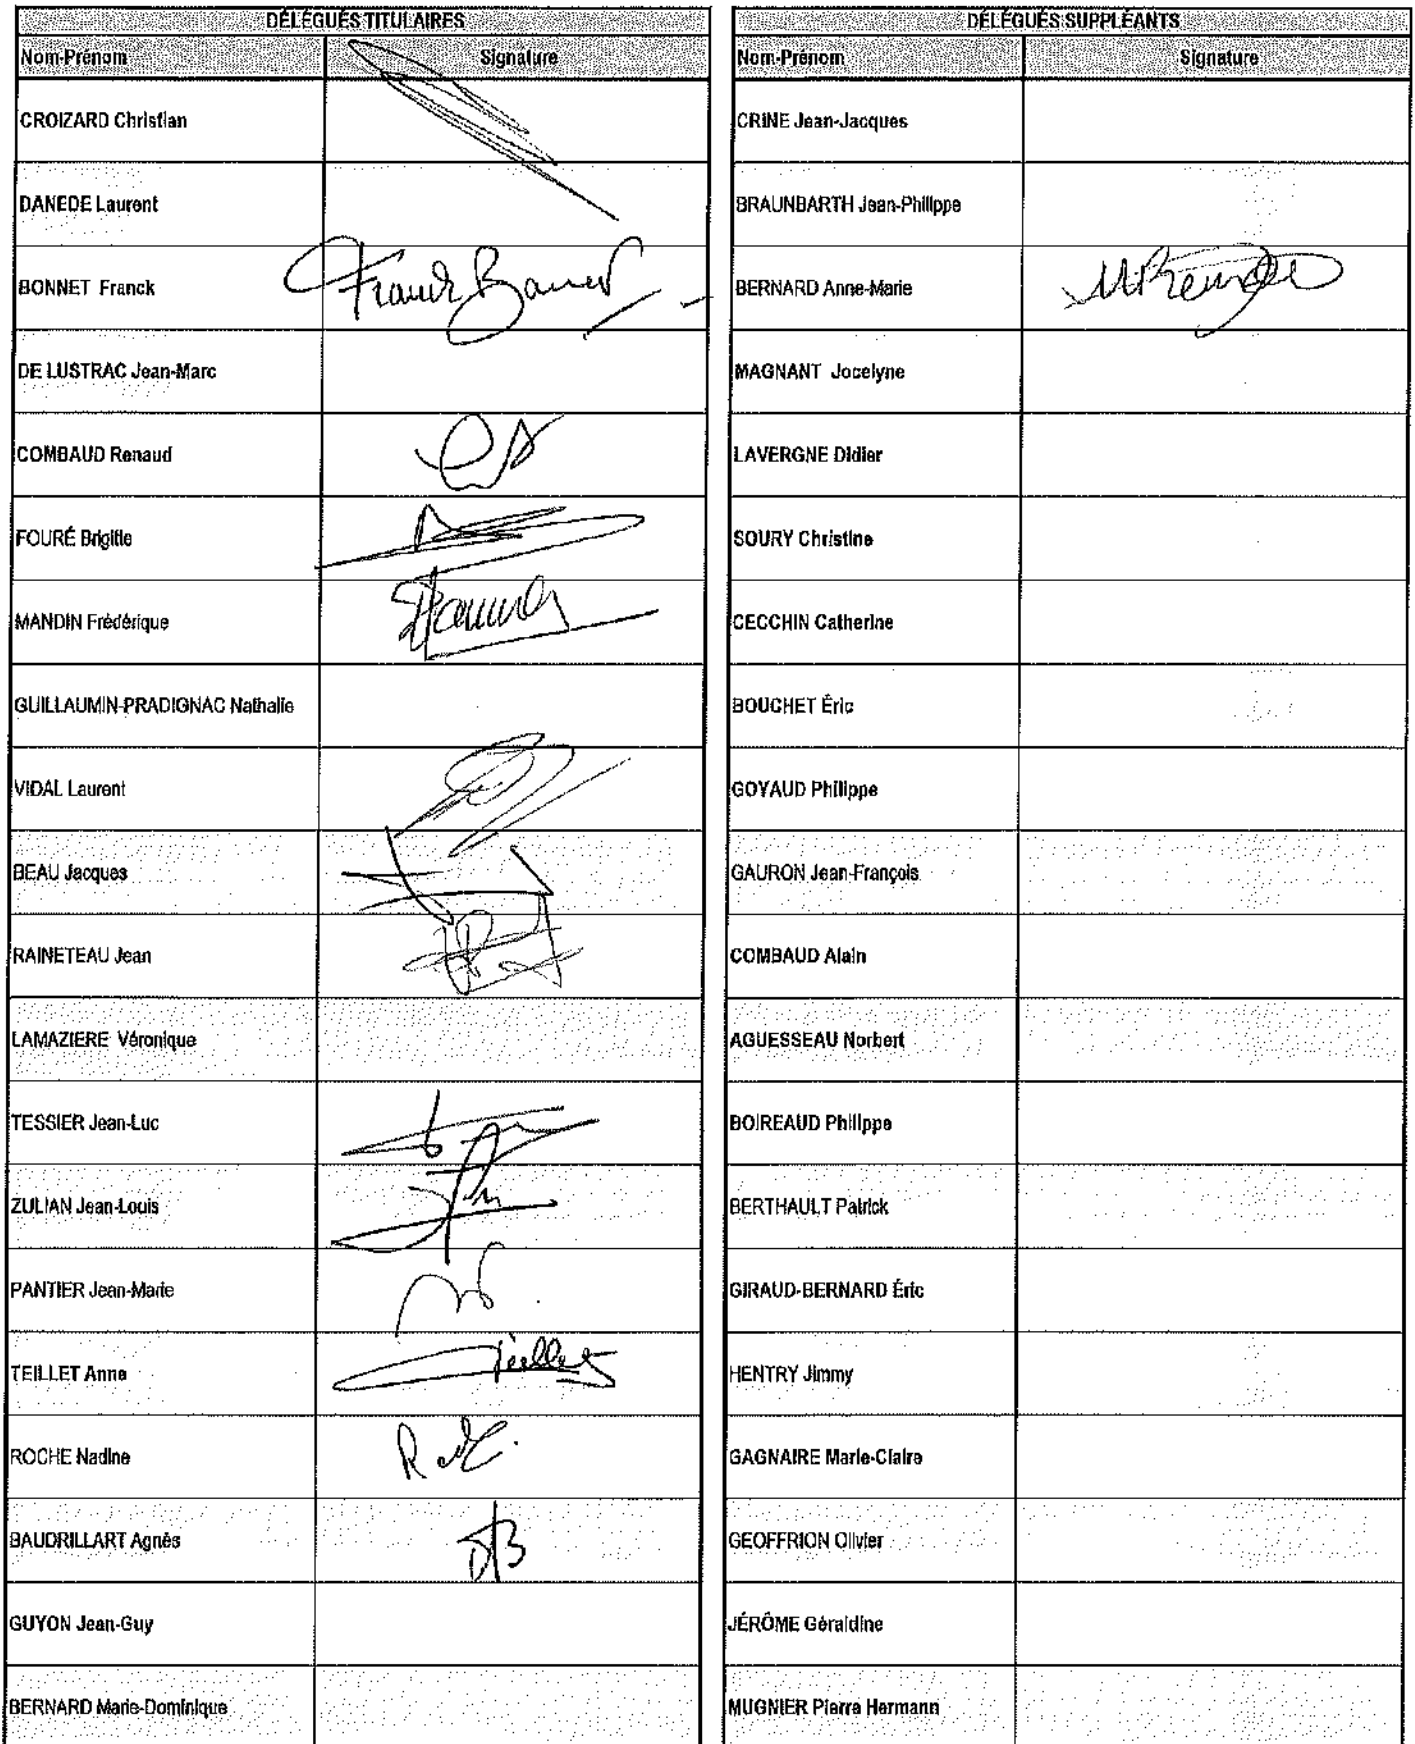 DÉLÉGUÉS TITULAIRES
Nom-Prénom Signature
CROIZARD Christian
DANEDE Laurent
BONNET Franck Franck Bonnet
DE LUSTRAC Jean-Marc
COMBAUD Renaud
FOURÉ Brigitte
MANDIN Frédérique
GUILLAUMIN-PRADIGNAC Nathalie
VIDAL Laurent
BEAU Jacques
RAINETEAU Jean
LAMAZIERE Véronique
TESSIER Jean-Luc
ZULIAN Jean-Louis
PANTIER Jean-Marie
TEILLET Anne Teillet
ROCHE Nadine
BAUDRILLART Agnès
GUYON Jean-Guy
BERNARD Marie-Dominique
DÉLÉGUÉS SUPPLÉANTS
Nom-Prénom Signature
CRINE Jean-Jacques
BRAUNBARTH Jean-Philippe
BERNARD Anne-Marie
MAGNANT Jocelyne
LAVERGNE Didier
SOURY Christine
CECCHIN Catherine
BOUCHET Éric
GOYAUD Philippe
GAURON Jean-François
COMBAUD Alain
AGUESSEAU Norbert
BOIREAUD Philippe
BERTHAULT Patrick
GIRAUD-BERNARD Éric
HENTRY Jimmy
GAGNAIRE Marie-Claire
GEOFFRION Olivier
JÉRÔME Géraldine
MUGNIER Pierre Hermann